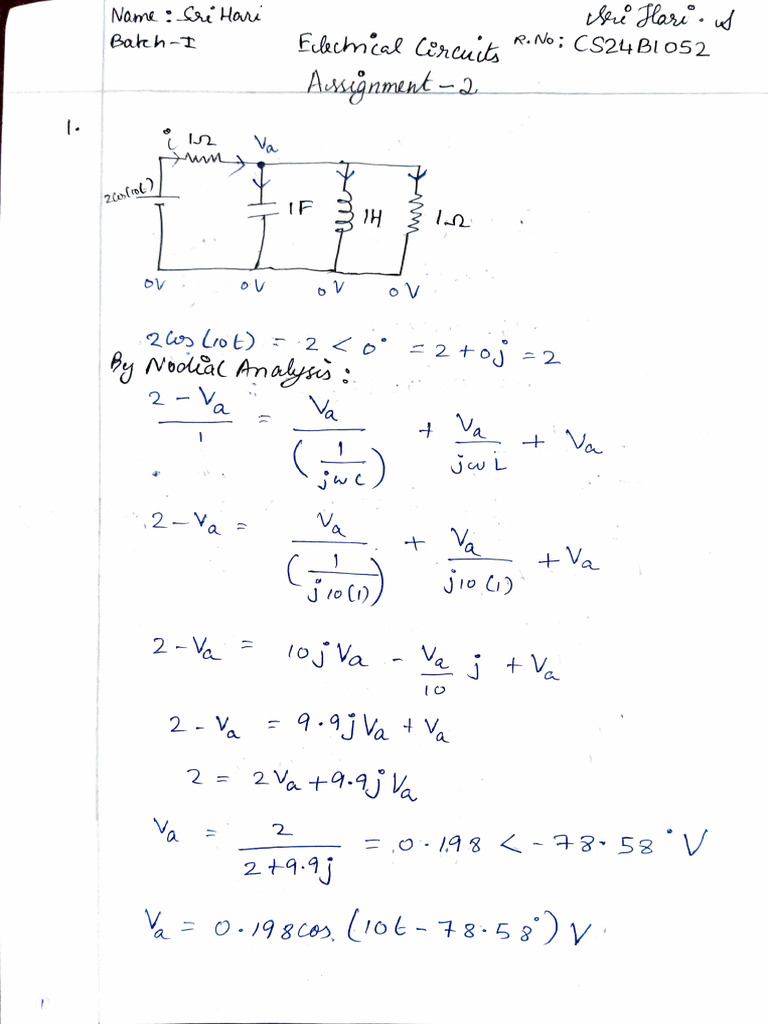 Name : Sri Hari
Sri Hari. A
Batch-I
Electrical Circuits
R.No: CS24B1052
Assignment - 2
1.
i 1Ω Va
2cos(10t)
1F 1H 1Ω
0V 0V 0V 0V
2cos(10t) = 2 < 0° = 2 + 0j = 2
By Nodial Analysis :
(2 - Va)/1 = Va/(1/jωC) + Va/jωL + Va
2 - Va = Va/(1/j10(1)) + Va/j10(1) + Va
2 - Va = 10jVa - Va/10 j + Va
2 - Va = 9.9jVa + Va
2 = 2Va + 9.9jVa
Va = 2/(2+9.9j) = 0.198 < -78.58° V
Va = 0.198cos(10t - 78.58°) V.